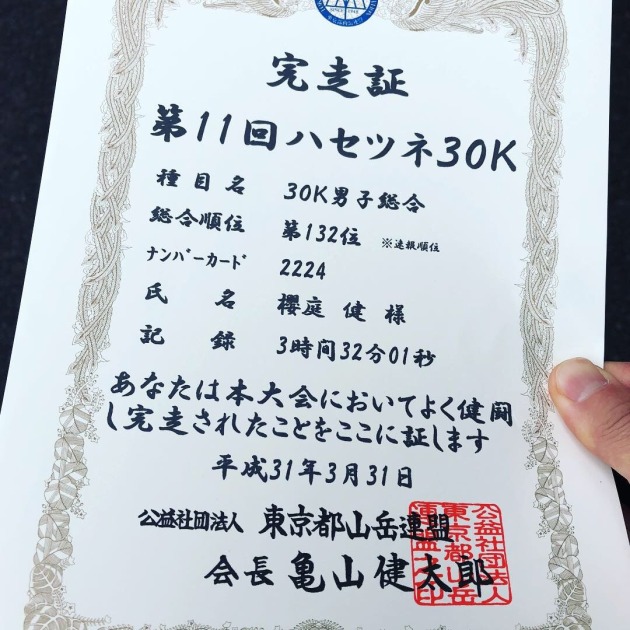 完走証
第11回ハセツネ30K
種目名 30K男子総合
総合順位 第132位 ※速報順位
ナンバーカード 2224
氏名 櫻庭 健 様
記録 3時間32分01秒
あなたは本大会においてよく健闘
し完走されたことをここに証します
平成31年3月31日
公益社団法人 東京都山岳連盟
会長 亀山健太郎